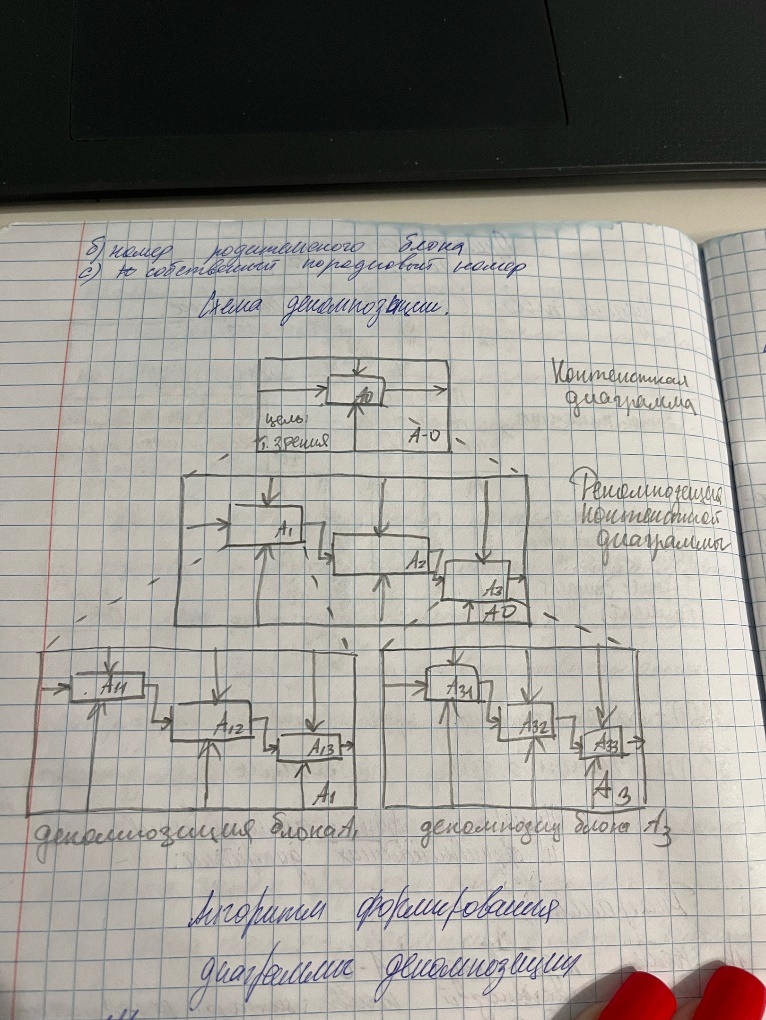 б) номер родительского блока
с) собственный порядковый номер
Схема декомпозиции.
А0
цель:
т. зрения
А-0
Контекстная
диаграмма
А1
А2
А3
А0
Декомпозиция
контекстной
диаграммы
А11
А12
А13
А1
А31
А32
А33
А3
декомпозиция блока А1
декомпозиц блока А3
Алгоритм формирования
диаграммы декомпозиции